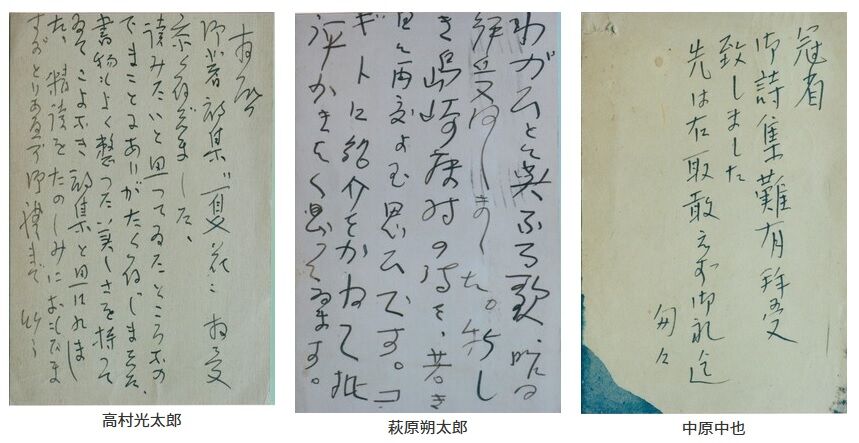 拝啓
御著詩集“夏花”拝受
読みたいと思つてゐたところなの
でまことにありがたく存じました、
書物もよく整つた美しさを持つて
ゐて
詩集と思はれまし
た、精読をたのしみに
とりあへず御礼まで
高村光太郎
わがひとに與ふる歌、
拝受
しました。新し
き島崎藤村の詩を、若き
日に再度よむ思ひです。コ
ギトに紹介をかねて批
評かきたく思つてゐます。
萩原朔太郎
冠省
御詩集難有拝受
致しました
先は右取敢えず御礼迄
匆々
中原中也